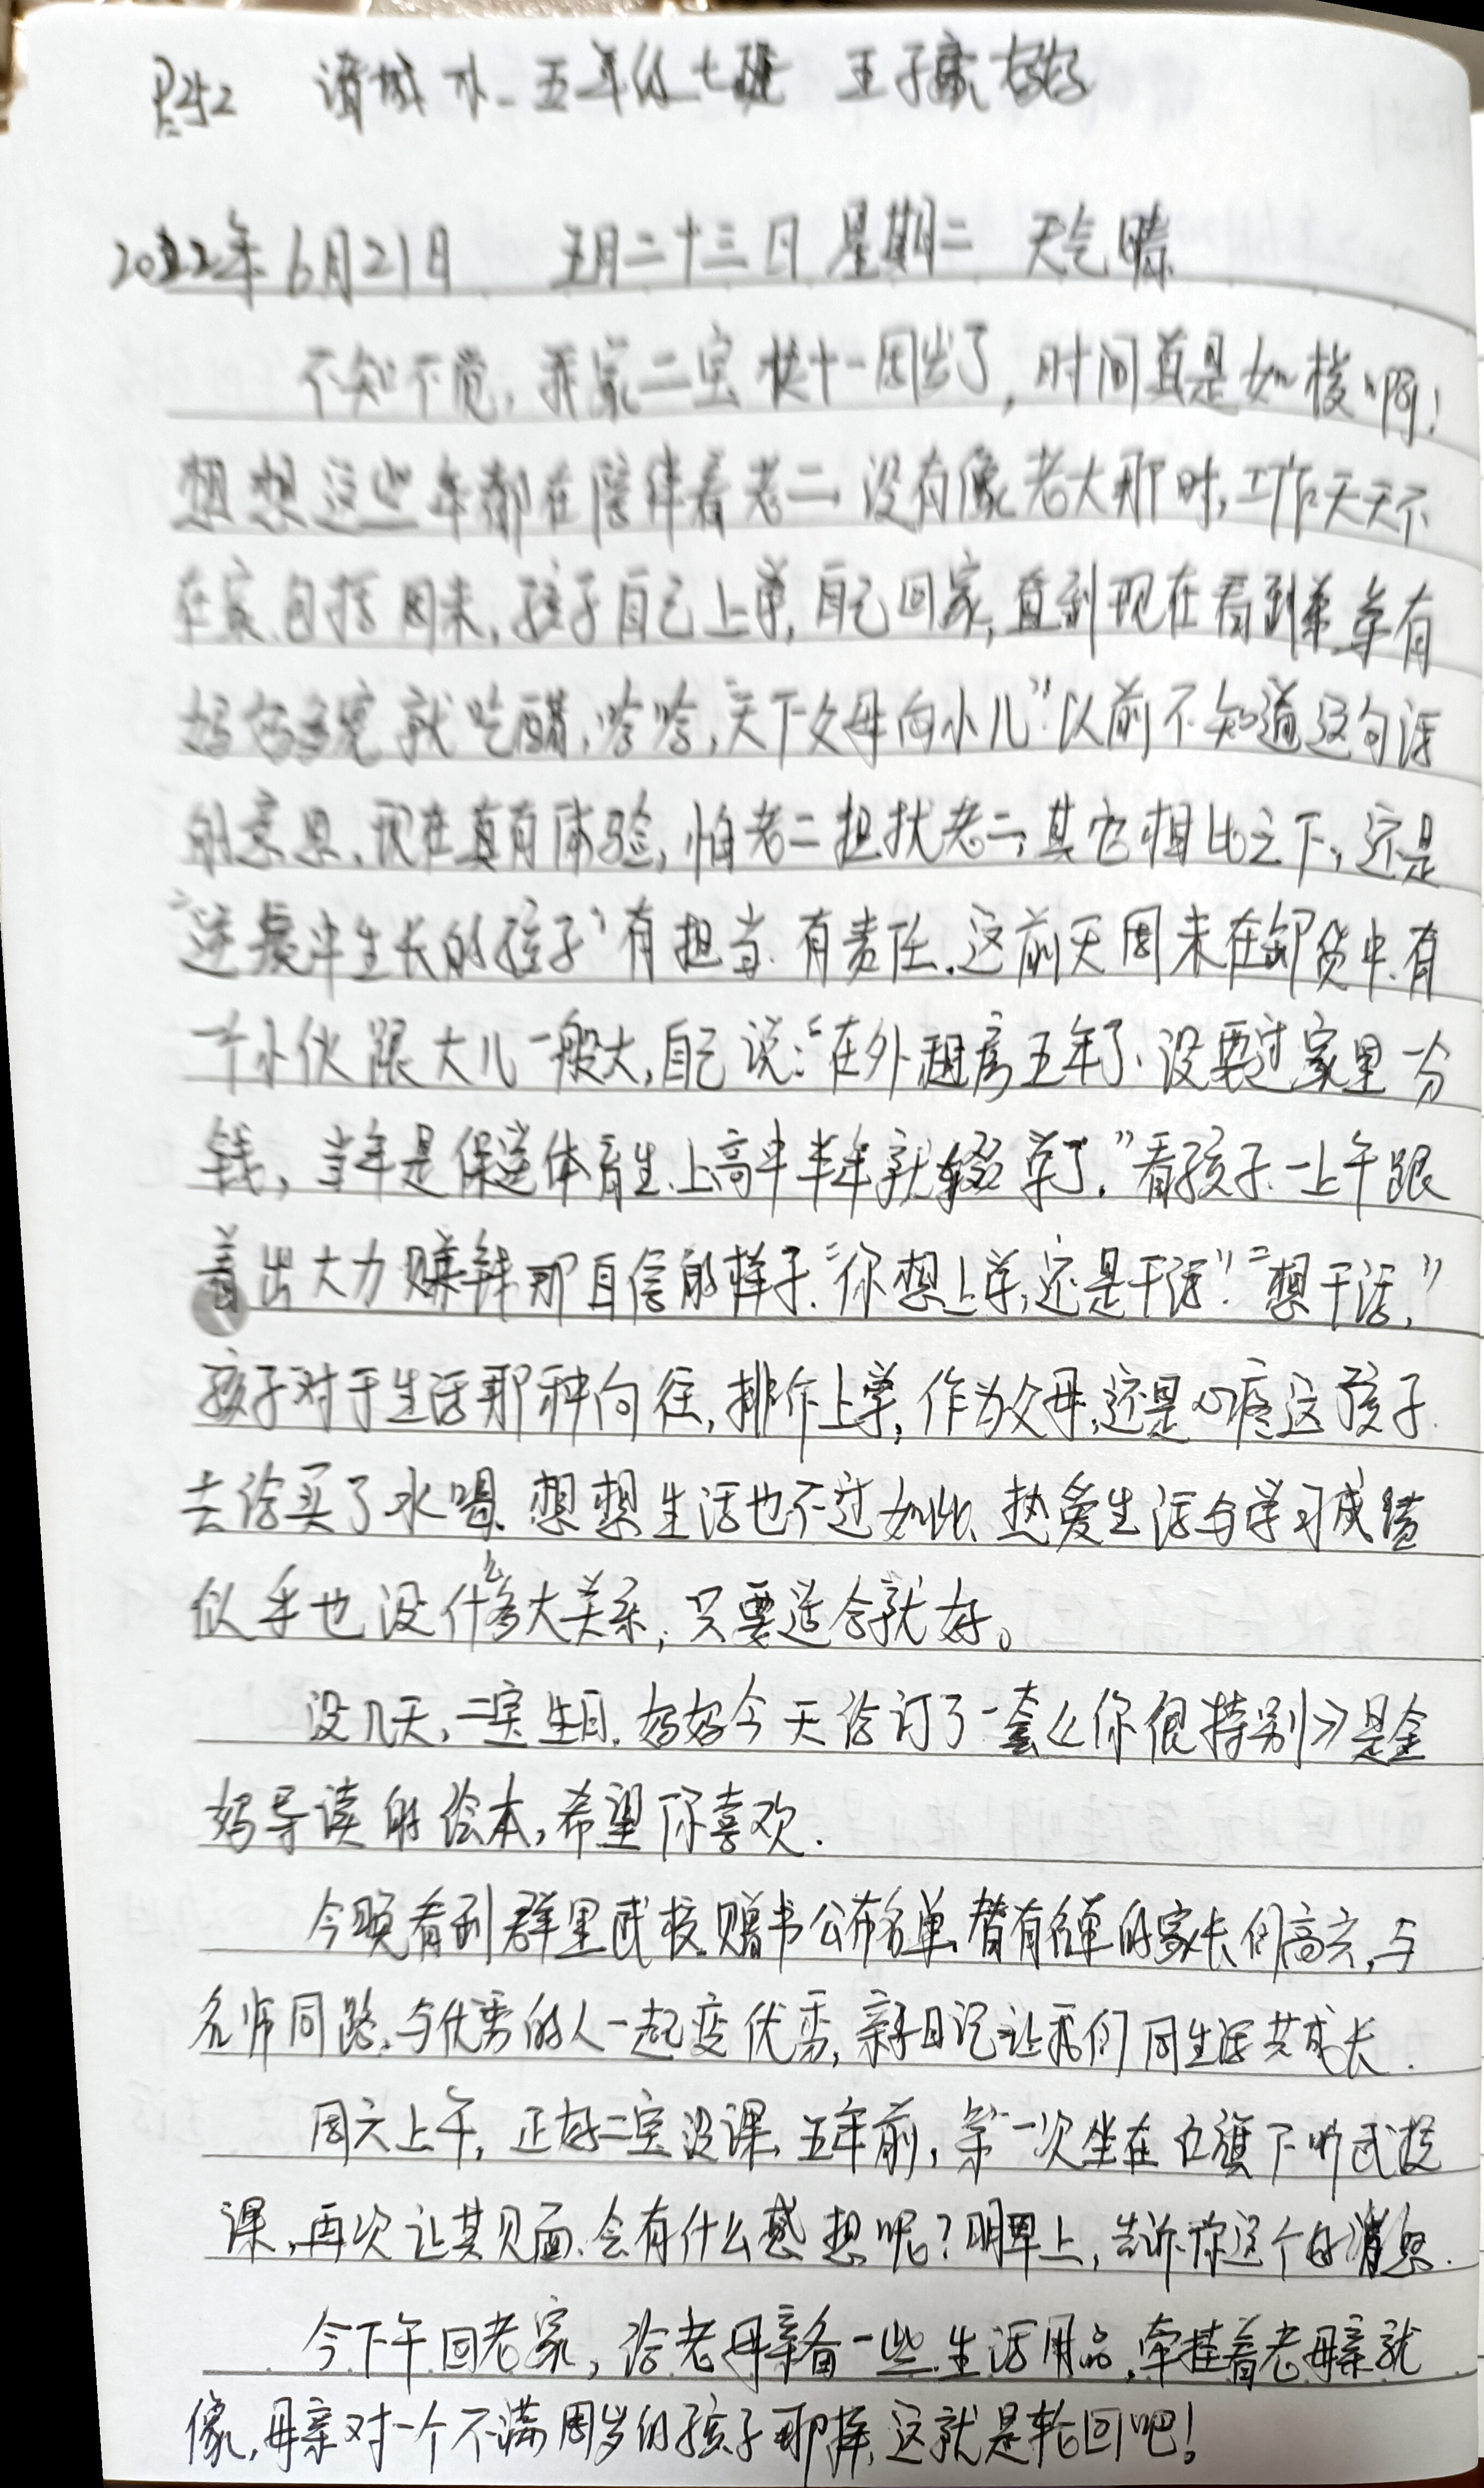 诸城 五年级七班 王子 妈妈
2022年6月21日 五月二十三日 星期二 天气晴
不知不觉,我家二宝快十一周岁了,时间真是如梭啊!
想想这些年都在陪伴着老二,没有像老大那时,工作天天不
在家,包括周末,孩子自己上学,自己回家,直到现在看到弟弟有
妈妈多宠就吃醋,哈哈,天下父母向小儿”以前不知道这句话
的意思,现在真有体验,怕老二担扰老二,其它相比之下,还是
“逆境中生长的孩子”有担当、有责任。这前天周末在卸货中,有
一个小伙跟大儿一般大,自己说:“在外租房五年了,没要过家里一分
钱,当年是保送体育生,上高中半年就辍学了。”看孩子一上午跟
着出大力赚钱那自信的样子,“你想上学,还是干活”“想干活,”
孩子对于生活那种向往,排斥上学,作为父母,还是心疼这孩子
去给买了水喝,想想生活也不过如此,热爱生活与学习成绩
似乎也没什么多大关系,只要适合就好。
没几天,二宝生日,妈妈今天给订了一套《你很特别》是金
妈导读的绘本,希望你喜欢.
今晚看到群里武校赠书公布名单,替有名单的家长们高兴,与
名师同路,与优秀的人一起变优秀,亲子日记让我们同生活共成长.
周六上午,正好二宝没课,五年前,第一次坐在红旗下听武校
课,再次让其见面,会有什么感想呢?明早上,告诉你这个好消息.
今下午回老家,给老母亲备一些生活用品,牵挂着老母亲就
像,母亲对一个不满周岁的孩子那样,这就是轮回吧!